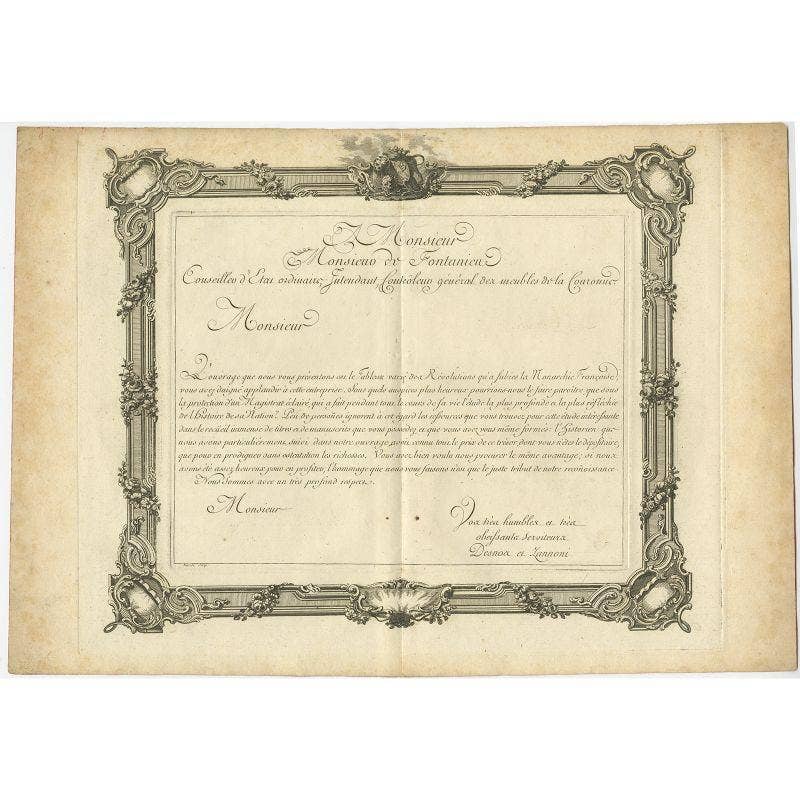 A Monsieur
Monsieur de Fontanieu
Conseiller d'Etat ordinaire, Intendant Controleur général des meubles de la Couronne
Monsieur
L'ouvrage que nous vous présentons est le Tableau varié des Révolutions qu'a subies la Monarchie Françoise;
vous avez daigné applaudir à cette entreprise. Sous quels auspices plus heureux pourrions-nous le faire paroître que sous
la protection d'un Magistrat éclairé, qui a fait pendant tout le cours de sa vie l'étude la plus profonde et la plus réfléchie
de l'histoire de sa Nation? Peu de persoñes ignorent à cet égard les resources que vous trouvez pour cette étude intéressante
dans le recueil immense de titres et de manuscrits que vous possedez et que vous avez vous même formés: l'historien que
nous avons particulièrement suivi dans notre ouvrage, a connu tout le prix de ce trésor, dont vous n'êtes le dépositaire,
que pour en prodiguer sans ostentation les richesses. Vous avez bien voulu nous procurer le même avantage; si nous
avons été assez heureux pour en profiter, l'hommage que nous vous faisons n'est que le juste tribut de notre reconoissance
Nous sommes avec un très profond respect,
Monsieur
Vos très humbles et très
obéissants serviteurs
Desnos et Zannoni